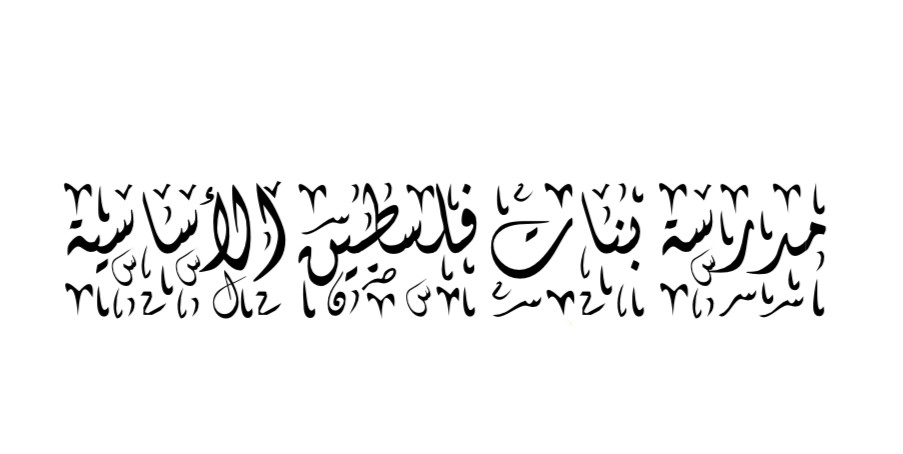 مدرسة بنات فلسطين الأساسية